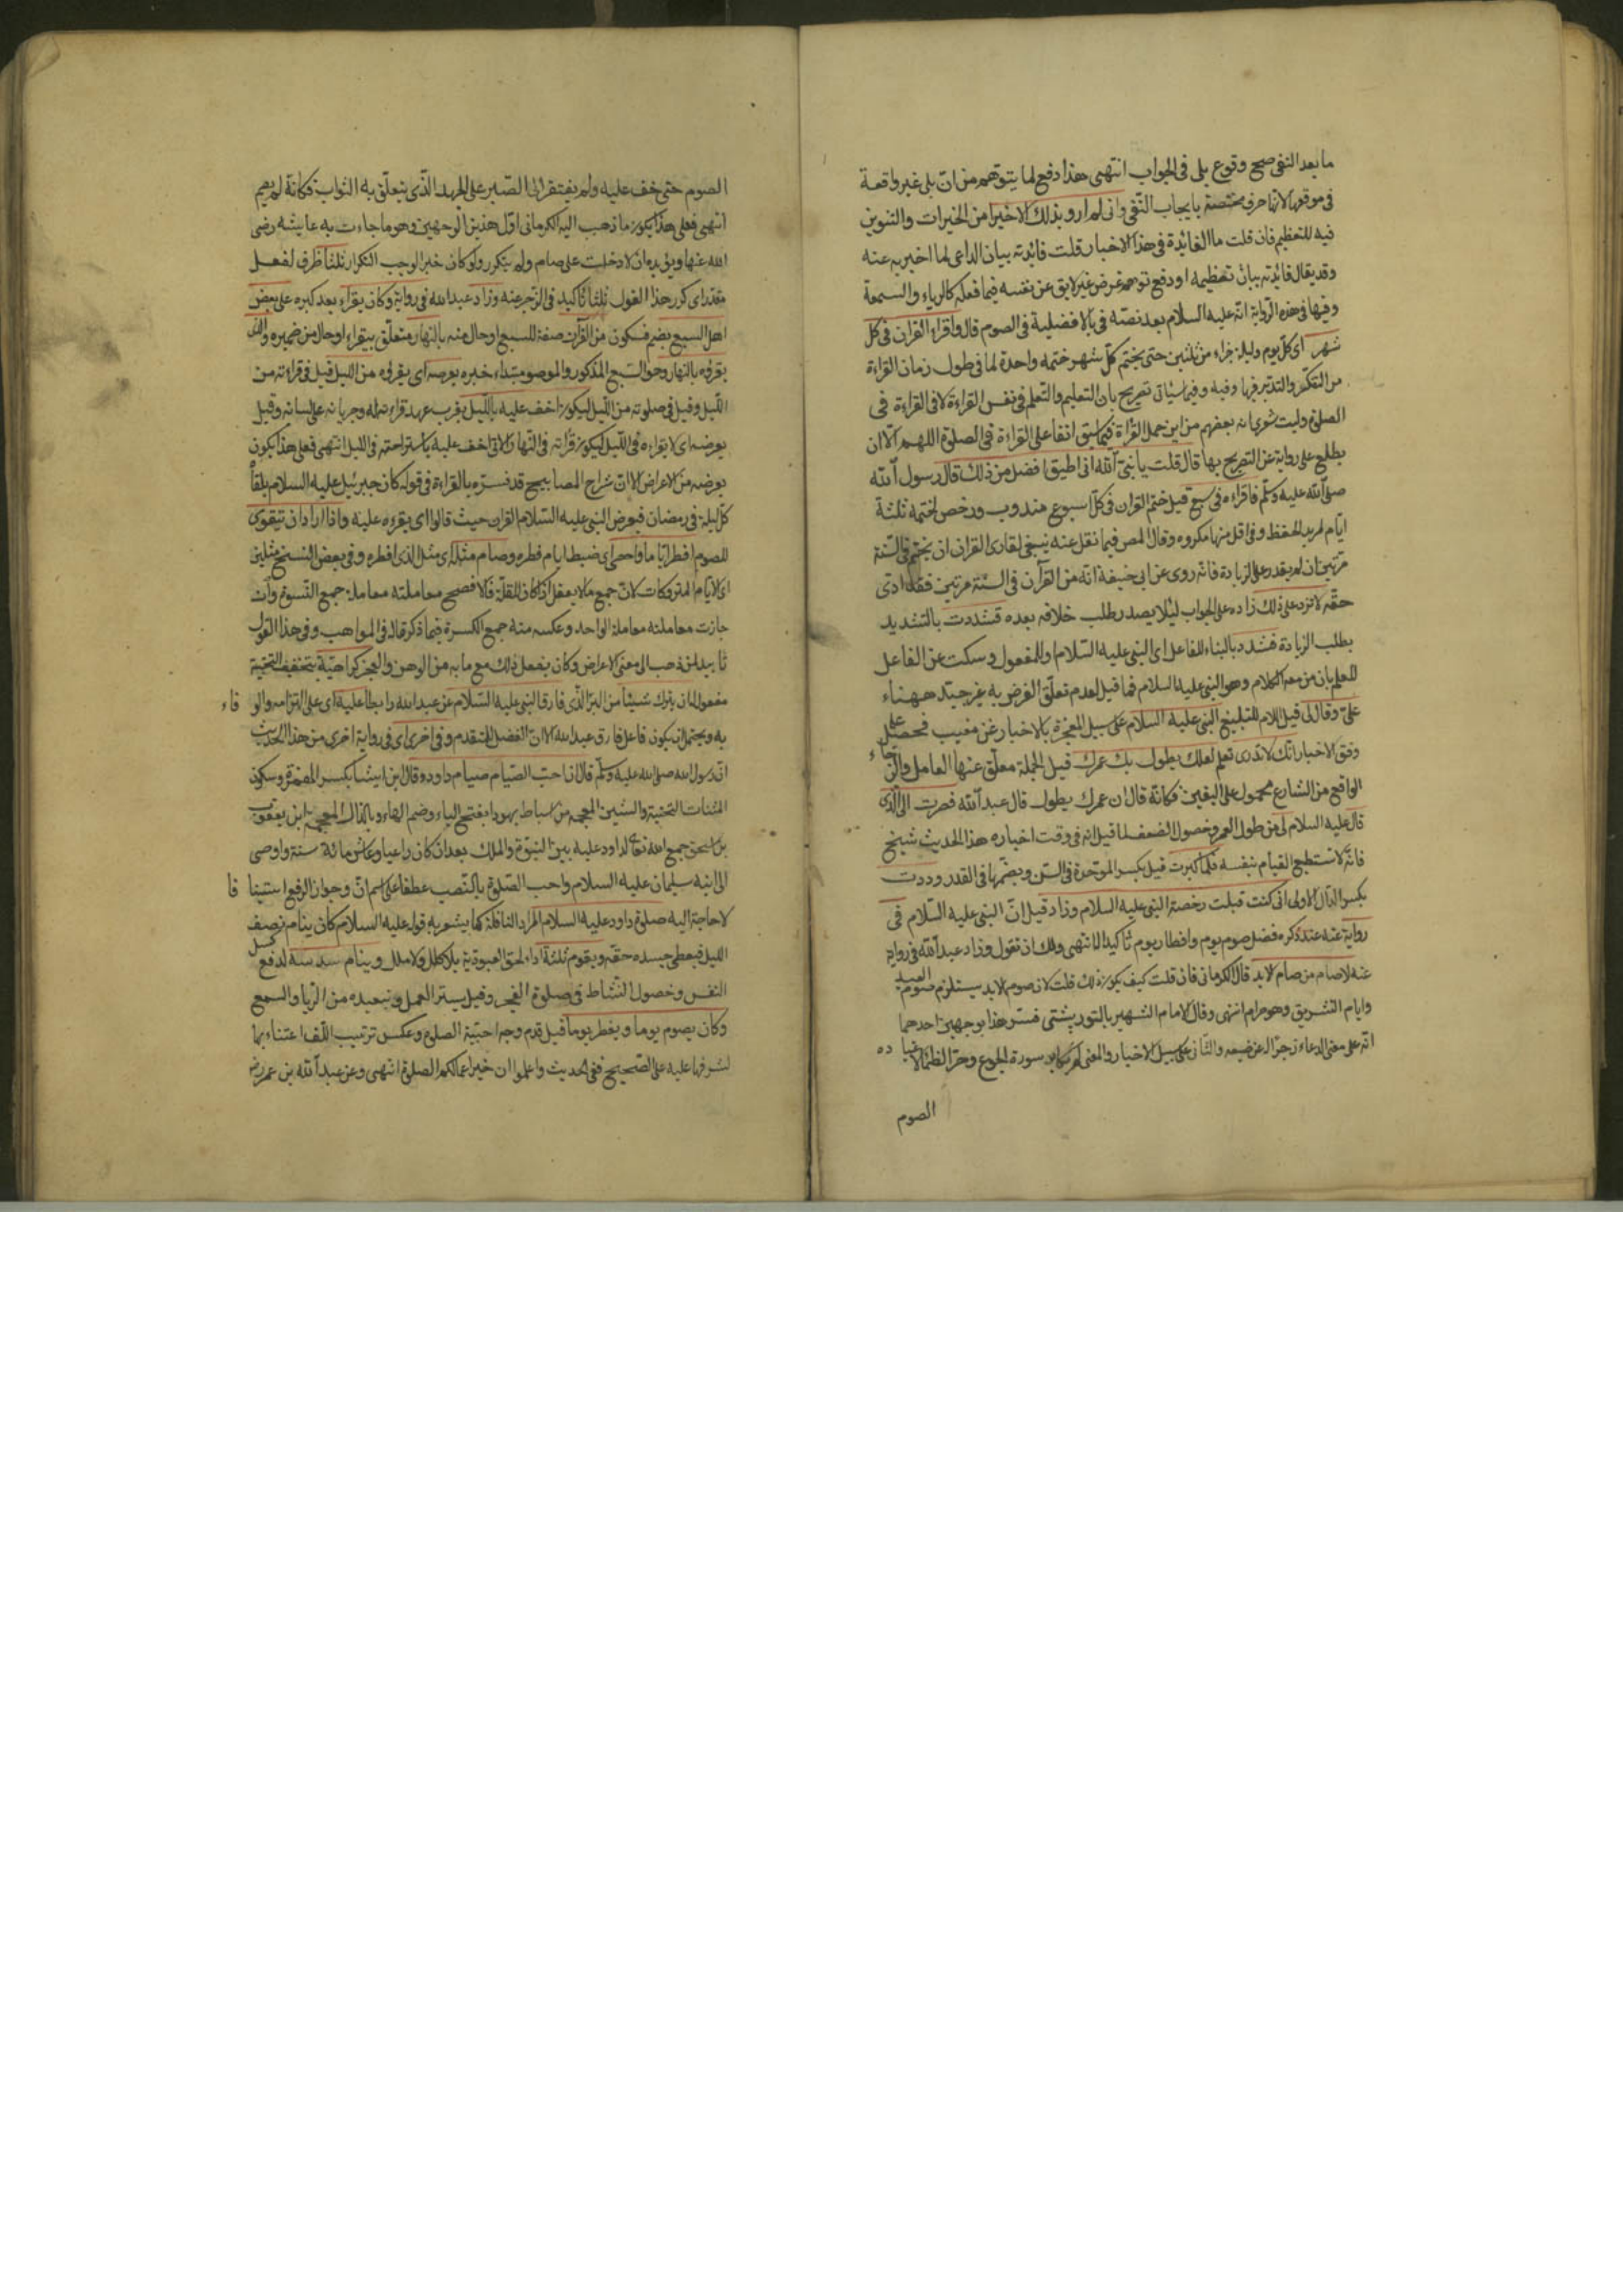 ما بعد النفى صح وقوع بلى فى الجواب انتهى هذا دفع لما يتوهم من ان بلى غير واقعة
فى موقعها لانها حرف مختصة بايجاب النفى وانى لم ارد بذلك الاخيرا من الخيرات والتنوين
فيه للتعظيم فان قلت ما الفايدة فى هذا الاخبار قلت فايدته بيان الداعى لما اخبر به عنه
وقد يقال فايدته بيان تعظيمه او دفع توهم غرض غير لايق عن نفسه فيما فعله كالرياء والسمعة
وفيها فى هذه الرواية انه عليه السلام بعد نصه فى بالافضلية فى الصوم قال واقراء القران فى كل
شهر اى كل يوم وليلة جزاء من ثلثين حتى يختم كل شهر ختمه واحدة لما فى طول زمان القراءة
من التفكر والتدبر فيها وفيه وفيما سياتى تصريح بان التعليم والتعلم فى نفس القراءة لا فى القراءة فى
الصلوة وليت شعرى انه بعضهم من اين حمل القراءة فيما سبق انفا على القراءة فى الصلوة اللهم الا ان
يطلع على رواية عن التصريح بها قال قلت يا نبى الله انى اطيق افضل من ذلك قال رسول الله
صلى الله عليه وسلم فاقراءه فى سبع قيل ختم القران فى كل اسبوع مندوب ورخص لختمه ثلثة
ايام لمريد الحفظ وفى اقل منها مكروه وقال المص فيما نقل عنه ينبغى لقارى القران ان يختم فى السنة
مرتين ان لم يقدر على الزيادة فانه روى عن ابى حنيفة انه من القرآن فى السنة مرتين فقد ادى
حقه لا تزد على ذلك زاده على الجواب لئلا يصدر طلب خلافه بعده فشددت بالتشديد
بطلب الزيادة فشدد بالبناء للفاعل اى النبى عليه السلام وللمفعول وسكت عن الفاعل
للعلم بان من معه الكلام وهو النبى عليه السلام فما قيل لعدم تعلق الغرض به غير جيد ههناء
على وقال لى قيل اللام للتبليغ النبى عليه السلام على سبيل المعجزة بالاخبار عن مغيب فحصل على
وفق الاخبار انك لا تدرى تعلم لعلك يطول بك عمرك قيل الجملة معلق عنها العامل والرجاء
الواقع من الشارع محمول على اليقين فكانه قال ان عمرك يطول قال عبد الله فصرت الى الذى
قال عليه السلام لى من طول العمر وحصول الضعف لما قيل انه فى وقت اخباره هذا الحديث شيخ
فانه لا تستطيع القيام بنفسه فلما كبرت قيل بكسر الموحدة فى السن وبضمها فى القدر وددت
بكسر الدال الاولى انى كنت قبلت رخصة النبى عليه السلام وزاد قيل ان النبى عليه السلام فى
رواية عنه عند ذكره فضل صوم يوم وافطار يوم تاكيدا انتهى ولك ان تقول وزاد عبد الله فى رواية
عنه لا صام من صام الابد قال الكرمانى فان قلت كيف يكون ذلك قلت لان صوم الابد يستلزم صوم العيد
وايام التشريق وهو حرام انتهى وقال الامام الشهير بالتوربشتى فسر هذا بوجهين احدهما
انه على معنى الدعاء زجرا له عن صنيعه والثانى على سبيل الاخبار والمعنى لم يكابد سورة الجوع وحر الظماء لاعتياده
الصوم
الصوم حتى خف عليه ولم يفتقر الى الصبر على الجهد الذى يتعلق به الثواب فكانه لم يصم
انتهى فعلى هذا يكون ما ذهب اليه الكرمانى اول هذين الوجهين وهو ما جاءت به عايشه رضى
الله عنها ويؤيده ان لا دخلت على صام ولم يتكرر ولو كان خبرا لوجب التكرار ثلثا ظرف لفعل
مقدر اى كرر هذا القول ثلثا تاكيد فى الزجر عنه وزاد عبد الله فى رواية وكان يقراء بعد كبره على بعض
اهل السبع بضم فسكون من القرآن صفة للسبع او حال منه بالنهار متعلق بيقراء او حال من ضميره والذى
يقراه بالنهار وهو السبع المذكور والموصو مبتداء خبره يعرضه اى يقراه من الليل قيل فى قراءته من
الليل وقيل فى صلوته من الليل ليكون اخف عليه بالليل بقرب عهد قراءته له وجريانه على لسانه وقيل
يعرضه اى لا يقراءه فى الليل ليكون قرأته فى النهار والاقى اخف عليه باستراحته فى الليل انتهى فعلى هذا يكون
يعرضه من الاعراض الا ان شراح المصابيح قد فسره بالقراءة فى قوله كان جبرئيل عليه السلام يلقاه
كل ليلة فى رمضان فيعرض النبى عليه السلام القران حيث قالوا اى يقرءه عليه واذا اراد ان يتقوى
للصوم افطر اياما واحصى اى ضبط ايام فطره وصام مثله اى مثل الذى افطره وفى بعض النسخ مثلهن
اى الايام المتروكات لان جمع ما لا يعقل اذا كان للقلة فالافصح معاملته معاملة جمع النسوة وان
جازت معاملته معاملة الواحد وعكسه منه جمع الكسرة فيما ذكر قال فى المواهب وفى هذا القول
تاييد لمن ذهب الى معنى الاعراض وكان يفعل ذلك مع ما به من الوهن والعجز كراهية بتخفيف التحتية
مفعوله ان يترك شيئا من البر الذى فارق النبى عليه السلام عن عبد الله رابطا عليه اى على التزامه والوفاء
به ويحتمل ان يكون فاعل فارق عبد الله الا ان الفضل للمتقدم وفى اخرى اى فى رواية اخرى من هذا الحديث
ان رسول الله صلى الله عليه وسلم قال ان احب الصيام صيام داوده قال ابن ايشا بكسر الهمزة وسكون
المثنات التحتية والشين المعجمة من اسباط يهودا بفتح الياء وضم الهاء وبالذال المعجمة ابن يعقوب
بن اسحق جمع الله تعالى لداود عليه بين النبوة والملك بعد ان كان راعيا وعاش مائة سنة واوصى
الى ابنه سليمان عليه السلام واحب الصلوة بالنصب عطفا على اسم ان وجواز الرفع استينافا
لا حاجة اليه صلوة داود عليه السلام المراد النافلة كما يشعر به قوله عليه السلام كان ينام نصف
الليل فيعطى جسده حقه ويقوم ثلثه اداء لحق العبودية بلا كلل ولا ملل وينام سدسه لدفع كسل
النفس وحصول النشاط فى صلوة الفجر وقيل يستر العمل وتبعيده من الريا والسمع
وكان يصوم يوما ويفطر يوما قيل قدم وجه احبية الصلوة وعكس ترتيب اللف اعتناء بها
لشرفها عليه على الصحيح ففى الحديث واعلموا ان خير اعمالكم الصلوة انتهى وعن عبد الله بن عمر رض